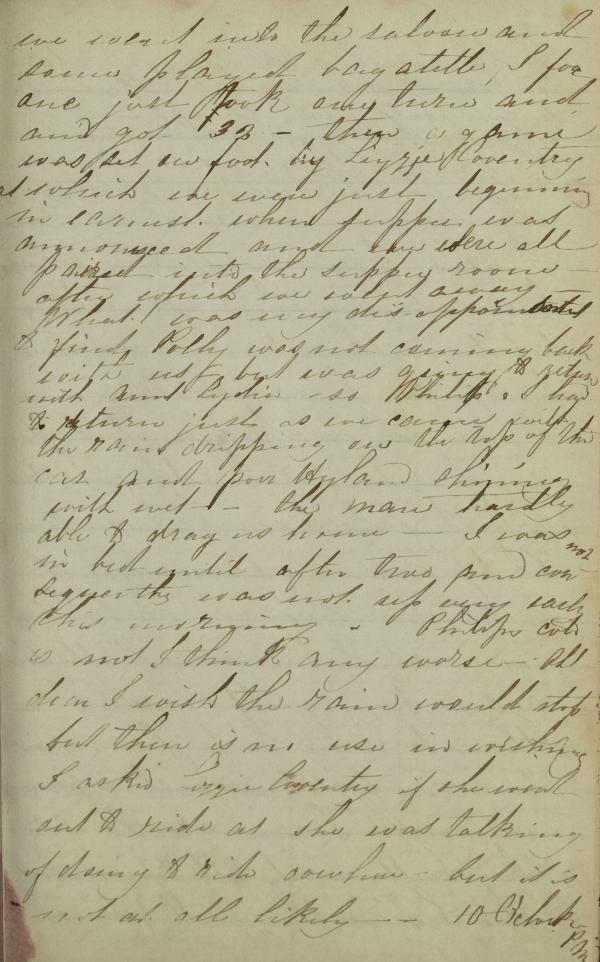 we went into the saloon and
some played bagatelle, I for
one just took any turn and
and got 33 - then a game
was set on foot by Lizzie Coventry
at which we were just beginning
in earnest when supper was
announced and we were all
paired into the supper room -
after which we went away
What was my disappointment
to find Polly was not coming back
with us, but was going to return
with Lydia - so Philip & I had
to return just as we came with
the rain dripping on the top of the
car and poor Hyland shining
with wet - the mare hardly
able to drag us home - I was not
in bed until after two and con
sequently was not up very early
this morning. Philips cold
is not I think any worse - Oh!
dear I wish the rain would stop
but then is no use in wishing
I askd Lizzie Coventry if she went
out to ride as she was talking
of doing to ride - but it is
not at all likely - - 10 O'Clock P.M